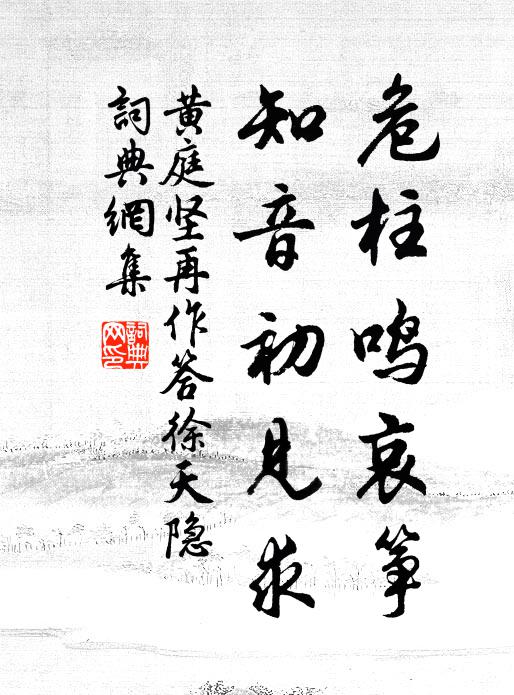 危柱鸣哀筝
知音初见求
黄庭坚再作答徐天隐
詞典網集
詞典网印